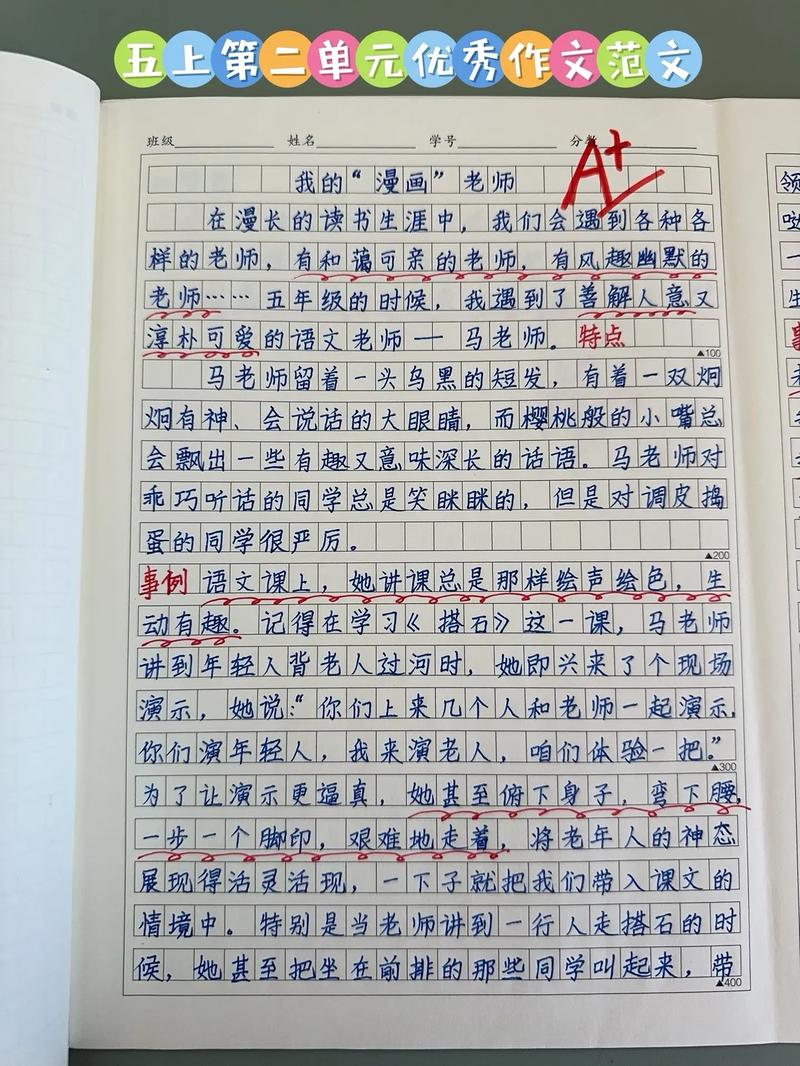 五上第二单元优秀作文范文
班级 姓名 学号 分数
A+
我的“漫画”老师
在漫长的读书生涯中，我们会遇到各种各
样的老师，有和蔼可亲的老师，有风趣幽默的
老师……五年级的时候，我遇到了善解人意又
淳朴可爱的语文老师——马老师。 特点
▲100
马老师留着一头乌黑的短发，有着一双炯
炯有神、会说话的大眼睛，而樱桃般的小嘴总
会飘出一些有趣又意味深长的话语。马老师对
乖巧听话的同学总是笑眯眯的，但是对调皮捣
蛋的同学很严厉。
▲200
事例 语文课上，她讲课总是那样绘声绘色，生
动有趣。记得在学习《搭石》这一课，马老师
讲到年轻人背老人过河时，她即兴来了个现场
演示，她说：“你们上来几个人和老师一起演示，
你们演年轻人，我来演老人，咱们体验一把。”
▲300
为了让演示更逼真，她甚至俯下身子，弯下腰，
一步一个脚印，艰难地走着，将老年人的神态
展现得活灵活现，一下子就把我们带入课文的
情境中。特别是当老师讲到一行人走搭石的时
候，她甚至把坐在前排的那些同学叫起来，带
▲400
领
哒
一
生